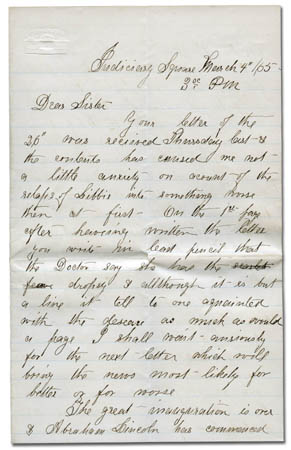 Judiciary Square March 4th /65
3 oc PM
Dear Sister
Your letter of the
26th was received Thursday last &
the contents has caused me not
a little anxiety on account of the
relaps of Libbie into something worse
then at first. On the 1st page
after having written the letter
you write in lead pencil that
the Doctor say she have the scarlet
fever dropsy & although it is but
a line it tell to one aquainted
with the desease as much as would
a page I shall wait anxiously
for the next letter which will
bring the news most likely for
better or for worse
The great inauguration is over
& Abraham Lincoln has commenced